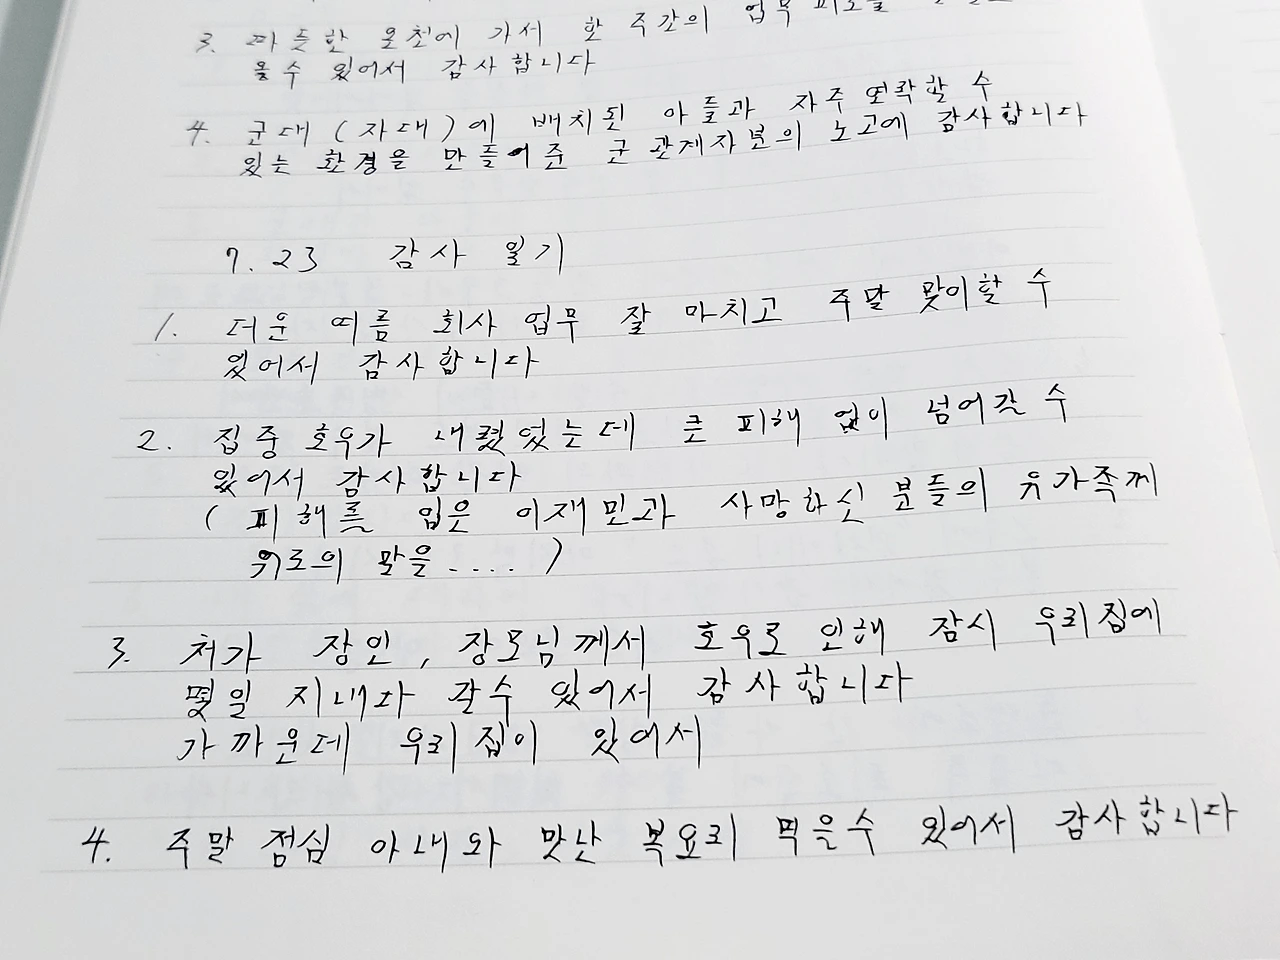 3. 따뜻한 온천에 가서 한 주간의 업무 피로를
을수 있어서 감사합니다
4. 군대 (자대)에 배치된 아들과 자주 연락할 수
있는 환경을 만들어준 군 관계자분의 노고에 감사합니다
7. 23 감사 일기
1. 더운 여름 회사 업무 잘 마치고 주말 맞이할 수
있어서 감사합니다
2. 집중 호우가 내렸었는데 큰 피해 없이 넘어갈 수
있어서 감사합니다
( 피해를 입은 이재민과 사망하신 분들의 유가족께
위로의 말을 .... )
3. 처가 장인, 장모님께서 호우로 인해 잠시 우리집에
몇일 지내다 갈수 있어서 감사합니다
가까운데 우리집이 있어서
4. 주말 점심 아내와 맛난 복요리 먹을수 있어서 감사합니다